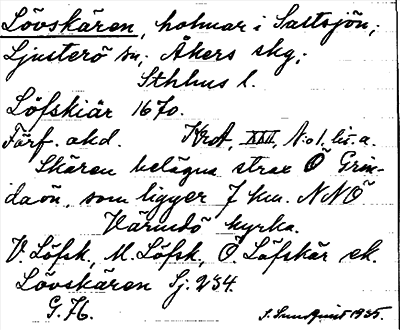 Lövskären, holmar i Saltsjön;
Ljusterö sn; Åkers skg;
Sthlms l.
Löfskiär 1670.
Förf. akd. KrA, XXII, N:o 1, lit. a.
Skären belägna strax Ö Grin-
daön, som ligger 7 km. NNÖ
Värmdö kyrka.
V. Löfsk, M. Löfsk, Ö Löfskär ek.
Lövskären Sj. 234.
G. H. S. Sundquist 1935.